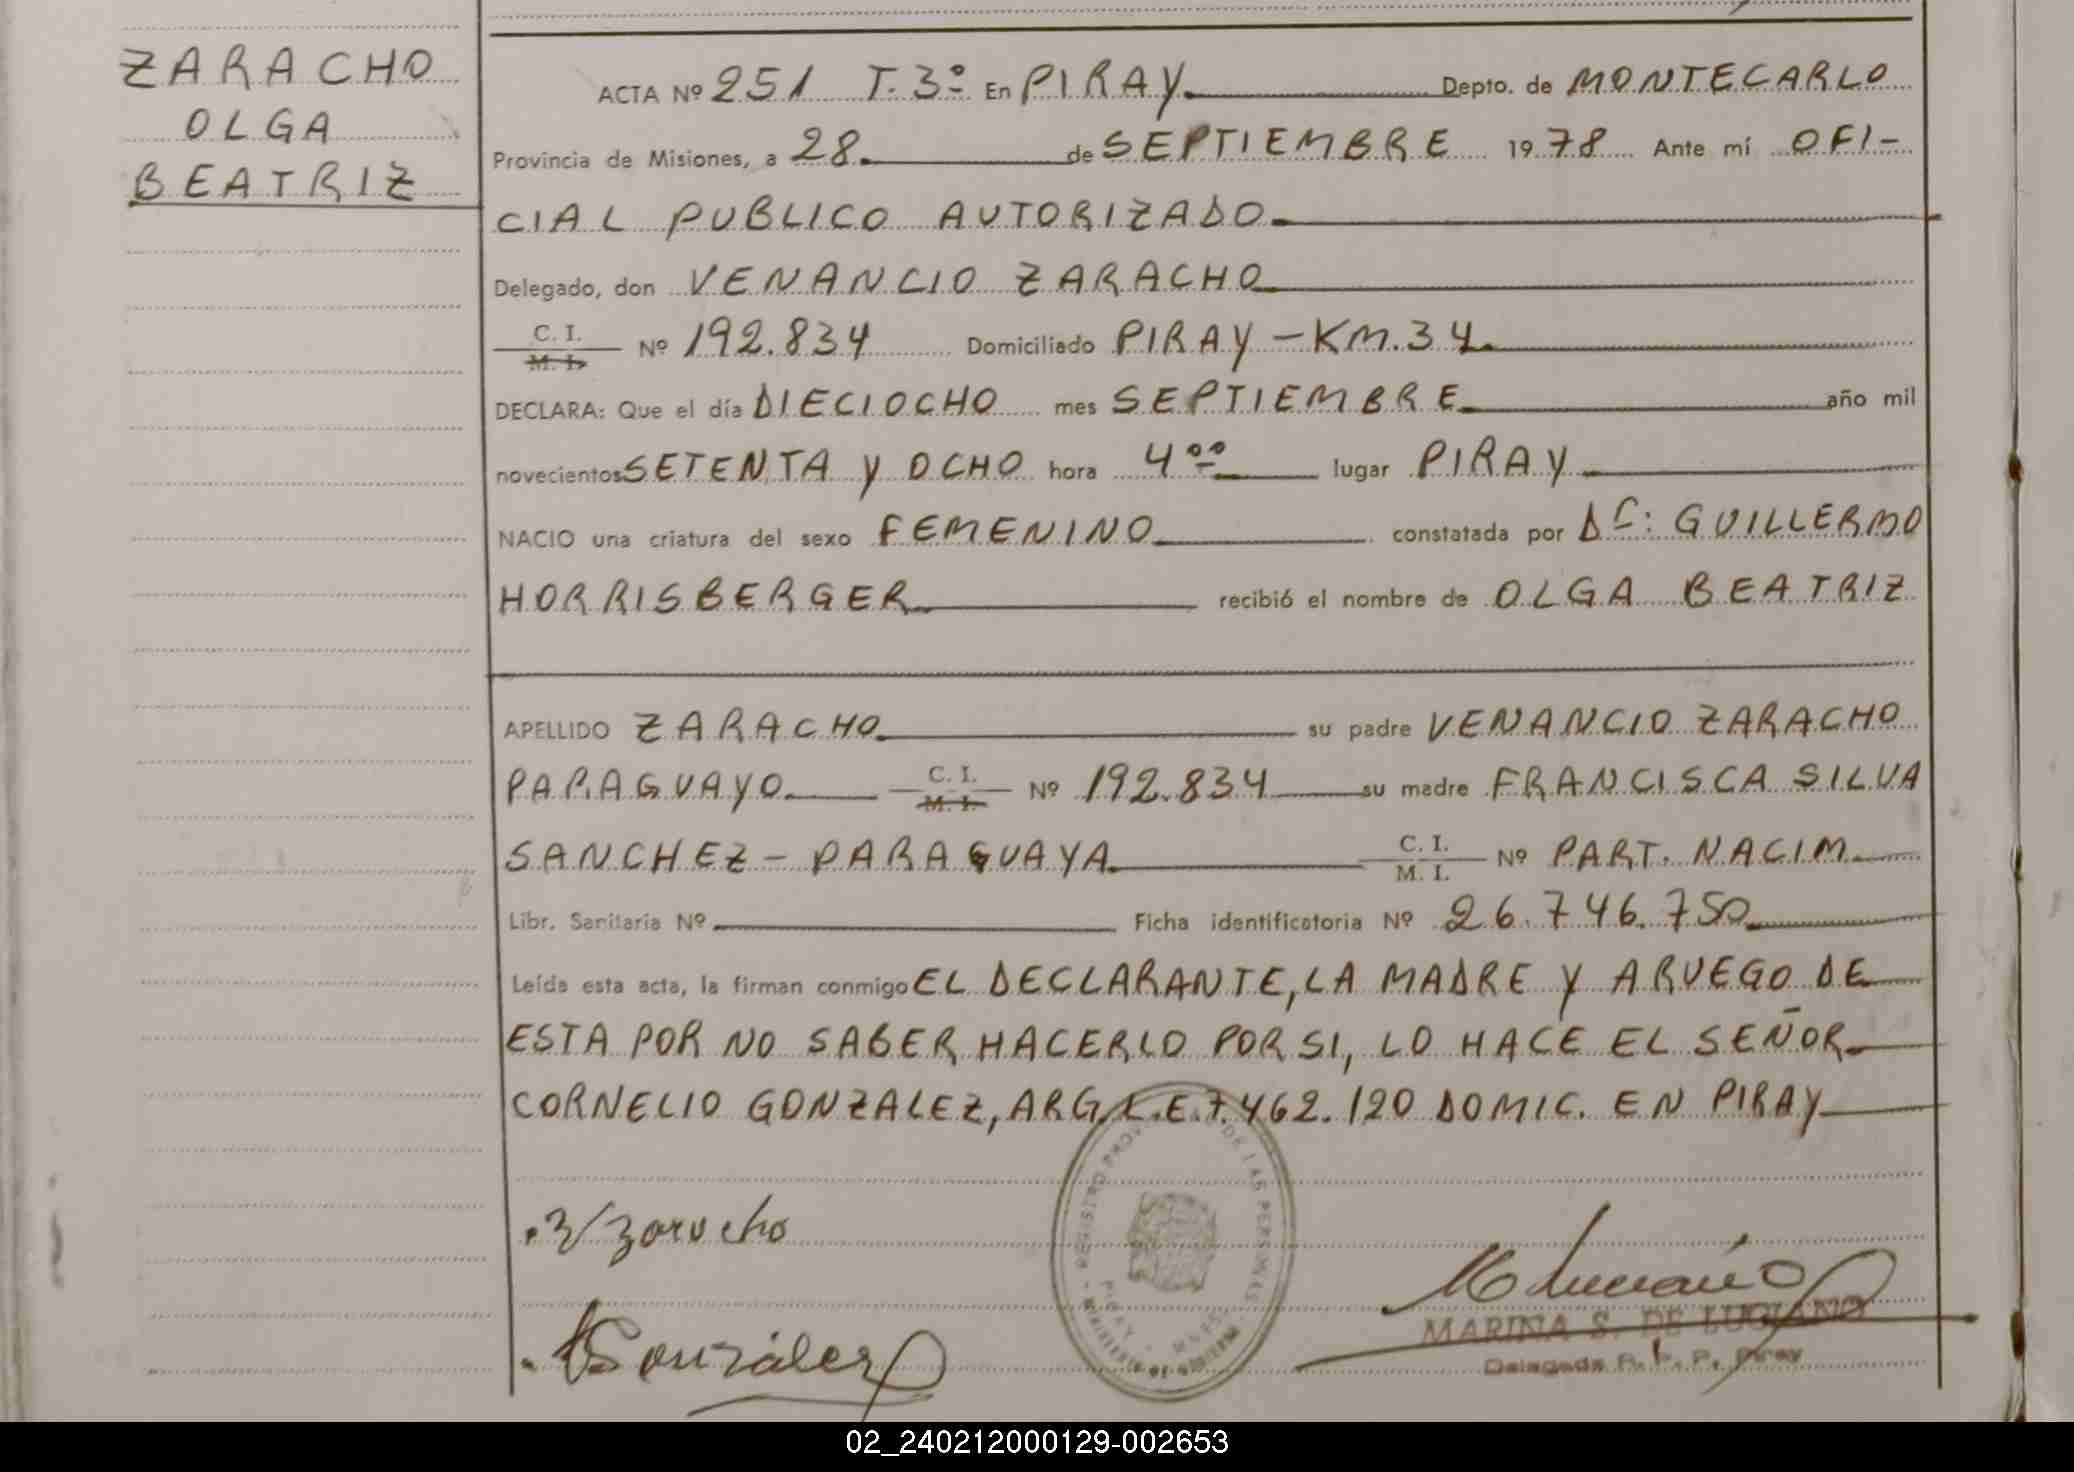 ZARACHO
OLGA
BEATRIZ
ACTA Nº 251 T. 3º En PIRAY Depto. de MONTECARLO
Provincia de Misiones, a 28 de SEPTIEMBRE 1978 Ante mí OFI-
CIAL PUBLICO AUTORIZADO
Delegado, don VENANCIO ZARACHO
C. I.
M. I. Nº 192.834 Domiciliado PIRAY - KM. 34.
DECLARA: Que el día DIECIOCHO mes SEPTIEMBRE año mil
novecientos SETENTA Y OCHO hora 4 00 lugar PIRAY
NACIO una criatura del sexo FEMENINO constatada por Dr: GUILLERMO
HORRISBERGER recibió el nombre de OLGA BEATRIZ
APELLIDO ZARACHO su padre VENANCIO ZARACHO
PARAGUAYO C. I. M. I. Nº 192.834 su madre FRANCISCA SILVA
SANCHEZ - PARAGUAYA C. I. M. I. Nº PART. NACIM.
Libr. Sanitaria Nº Ficha identificatoria Nº 26.746.750
Leída esta acta, la firman conmigo EL DECLARANTE, LA MADRE Y A RUEGO DE
ESTA POR NO SABER HACERLO POR SI, LO HACE EL SEÑOR
CORNELIO GONZALEZ, ARG. L.E. 7.462.120 DOMIC. EN PIRAY
V Zaracho
González
MARINA S. DE LUCIANO
Delegada R. P. P. Piray
02_240212000129-002653